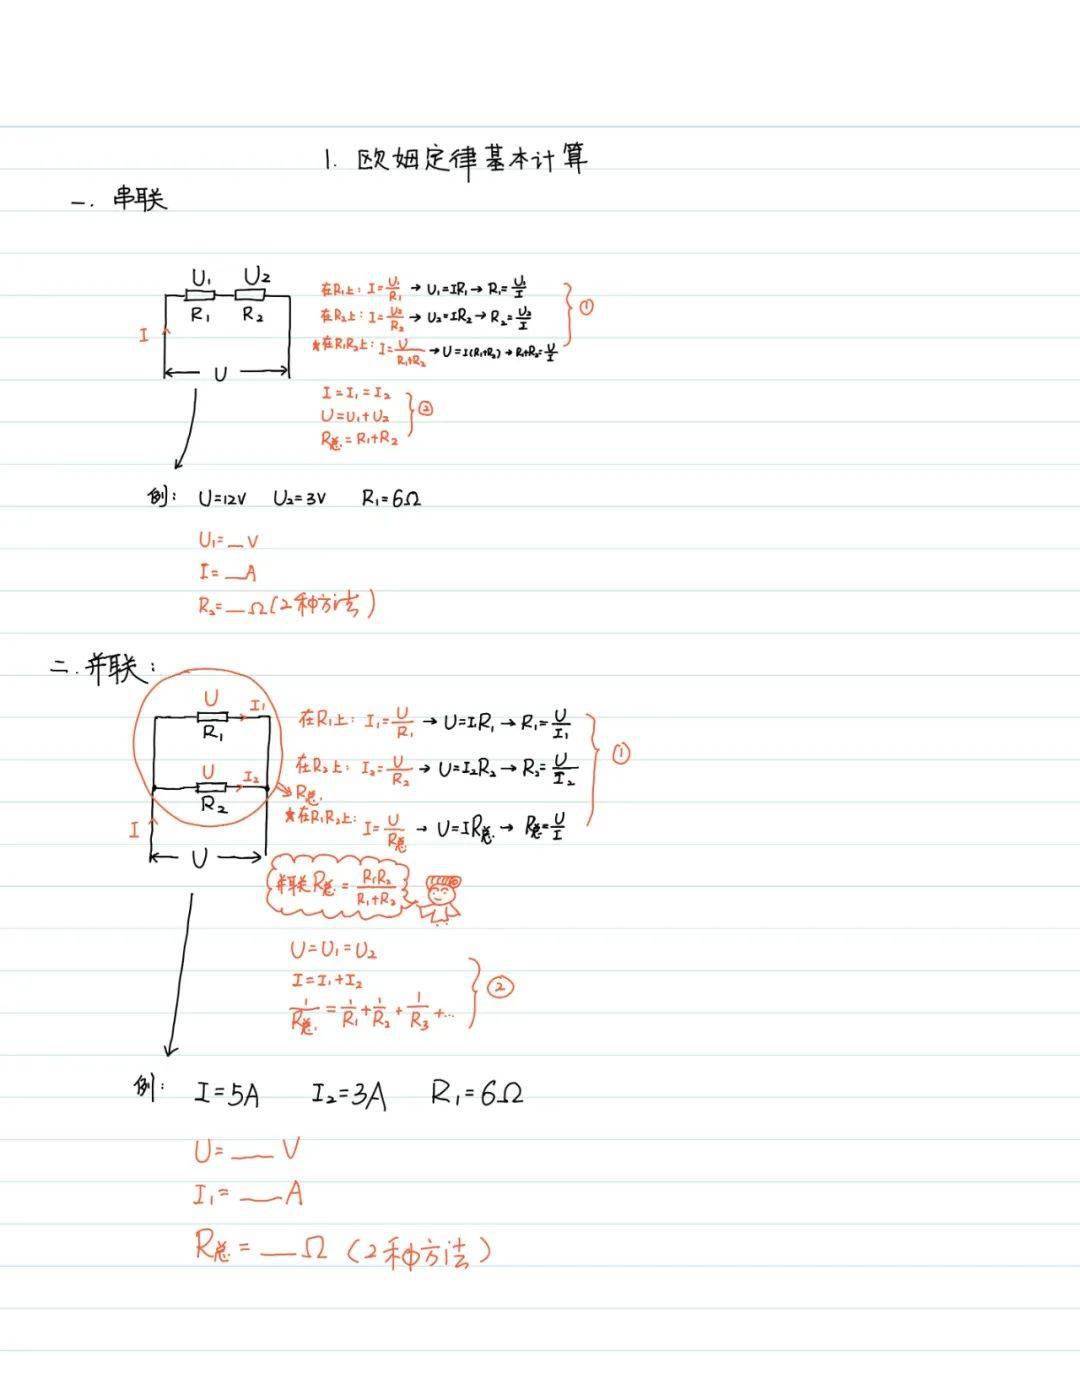 1. 欧姆定律基本计算
一. 串联
U₁ U₂
R₁ R₂
I
U
在R₁上: I=U₁/R₁ → U₁=IR₁ → R₁=U₁/I
在R₂上: I=U₂/R₂ → U₂=IR₂ → R₂=U₂/I
★在R₁R₂上: I=U/(R₁+R₂) → U=I(R₁+R₂) → R₁+R₂=U/I
①
I=I₁=I₂
U=U₁+U₂
R总=R₁+R₂
②
例: U=12V U₂=3V R₁=6Ω
U₁=__V
I=__A
R₂=__Ω(2种方法)
二. 并联:
U I₁
R₁
U I₂
R₂
R总
I
U
在R₁上: I₁=U/R₁ → U=IR₁ → R₁=U/I₁
在R₂上: I₂=U/R₂ → U=I₂R₂ → R₂=U/I₂
★在R₁R₂上: I=U/R总 → U=IR总 → R总=U/I
①
并联R总=R₁R₂/(R₁+R₂)
U=U₁=U₂
I=I₁+I₂
1/R总=1/R₁+1/R₂+1/R₃+...
②
例: I=5A I₂=3A R₁=6Ω
U=__V
I₁=__A
R总=__Ω (2种方法)